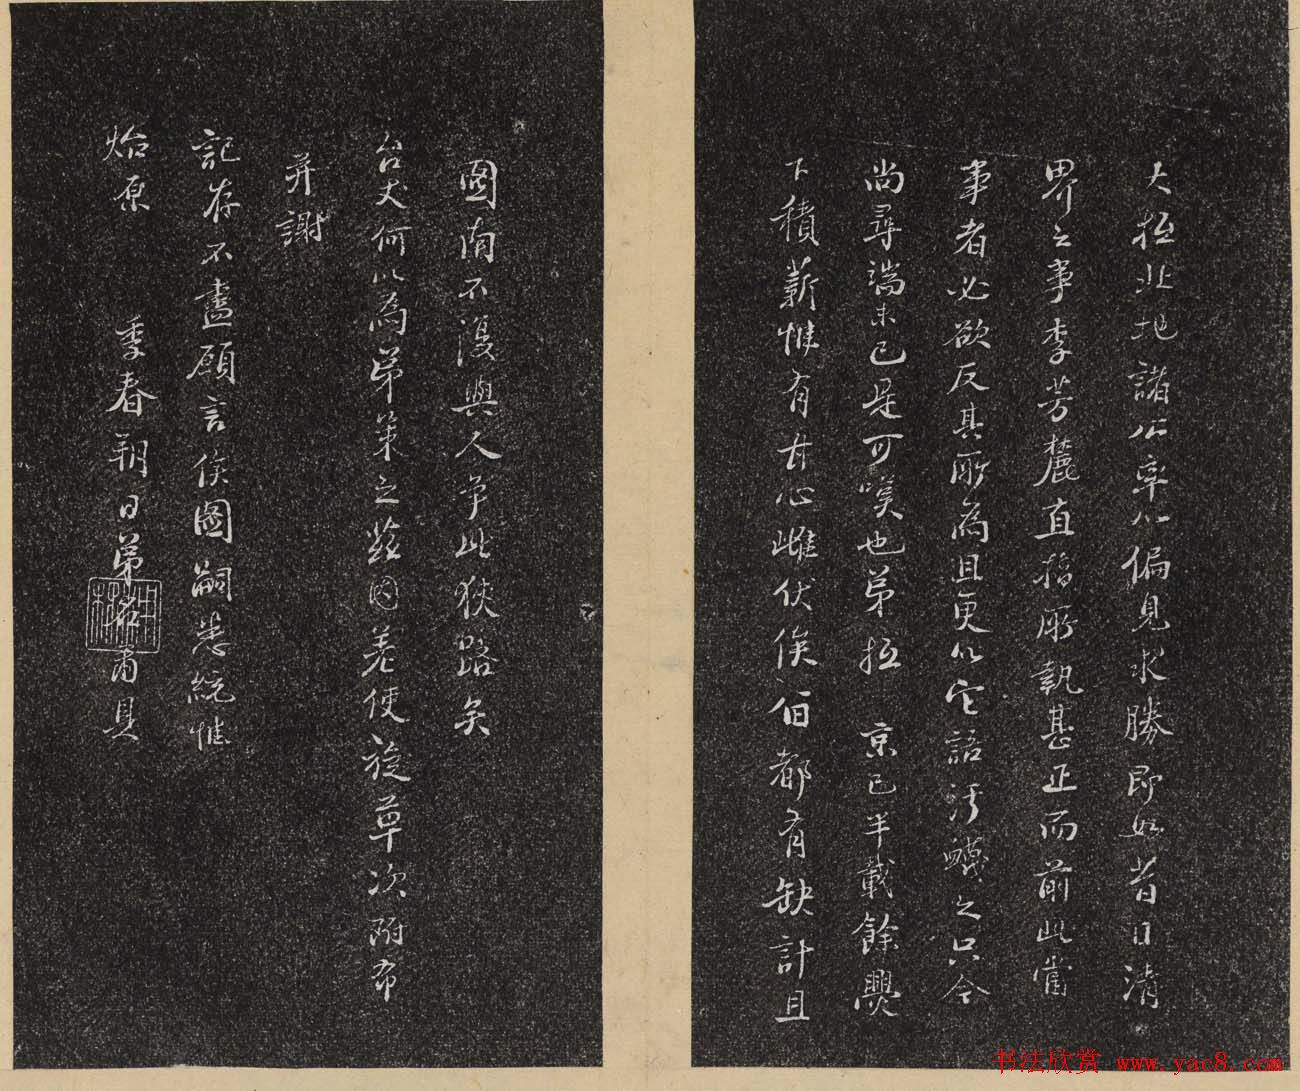 大抵北地諸公率以偏見求勝即如昔日清
界之事李芳麓直指所執甚正而前此當
事者必欲反其所為且更以它語汙衊之只今
尚尋端未已是可嘆也弟抵 京已半載餘舋
下積薪惟有甘心雌伏俟伯都有缺計且
圖南不復與人爭此狹路矣
台丈何以為弟策之茲因差使旋草次附布
并謝
記存不盡願言俟圖嗣悉統惟
炤原 季春朔日弟名肅具
书法欣赏 www.yac8.com